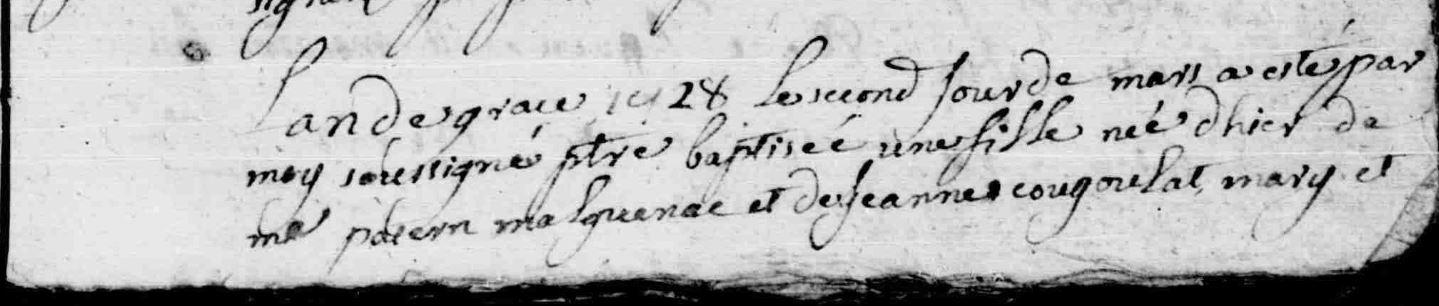 Lan de grace 1728 le second Jour de mars a esté par
moy soussigné ptre baptiseé une fille neé d'hier de
me patern malguenac et de Jeanne cougoulat mary et